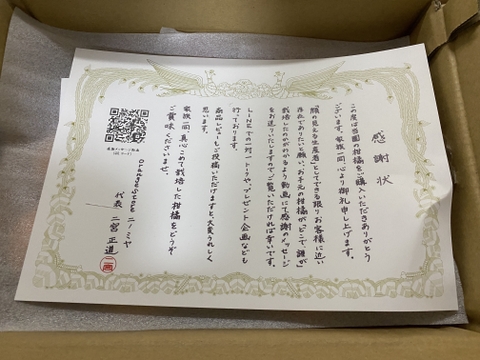 感謝状
この度は当園の柑橘をご購入いただきありがとう
ございます。家族一同心より御礼申し上げます。
「顔の見える生産者」としてできる限りお客様に近い
存在でありたいと願い、お手元の柑橘が「どこで、誰が
栽培したのか」がわかるよう動画にて感謝のメッセージ
をお送りいたしますのでご覧いただければ幸いです。
LINEでの一対一トークや、プレゼント企画なども
行っております。
商品レビューもご投稿いただけますと、大変うれしく
思います。
家族一同、真心こめて栽培した柑橘をどうぞ
ご賞味くださいませ。
Orange Store ニノミヤ
代表 二宮 正道
二宮